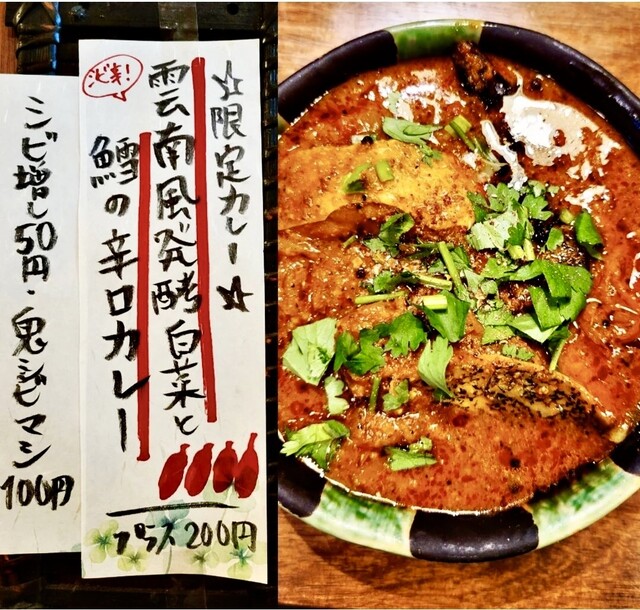 ☆限定カレー☆
シビ辛!
雲南風発酵白菜と
鱈の辛口カレー
プラス200円
シビ増し50円・鬼シビマシ100円